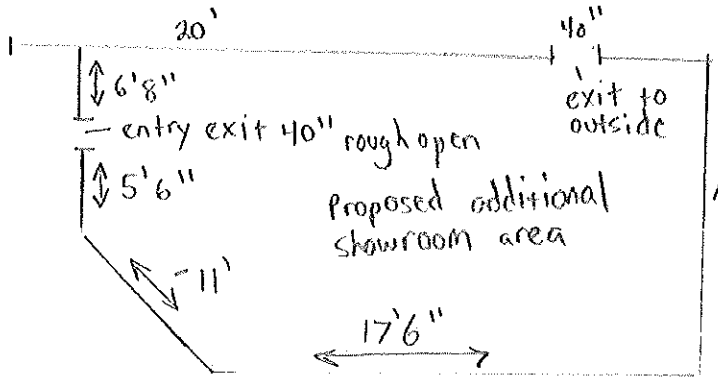 20'
40"
6'8"
exit to
outside
entry exit 40" rough open
5'6"
Proposed additional
showroom area
11'
17'6"